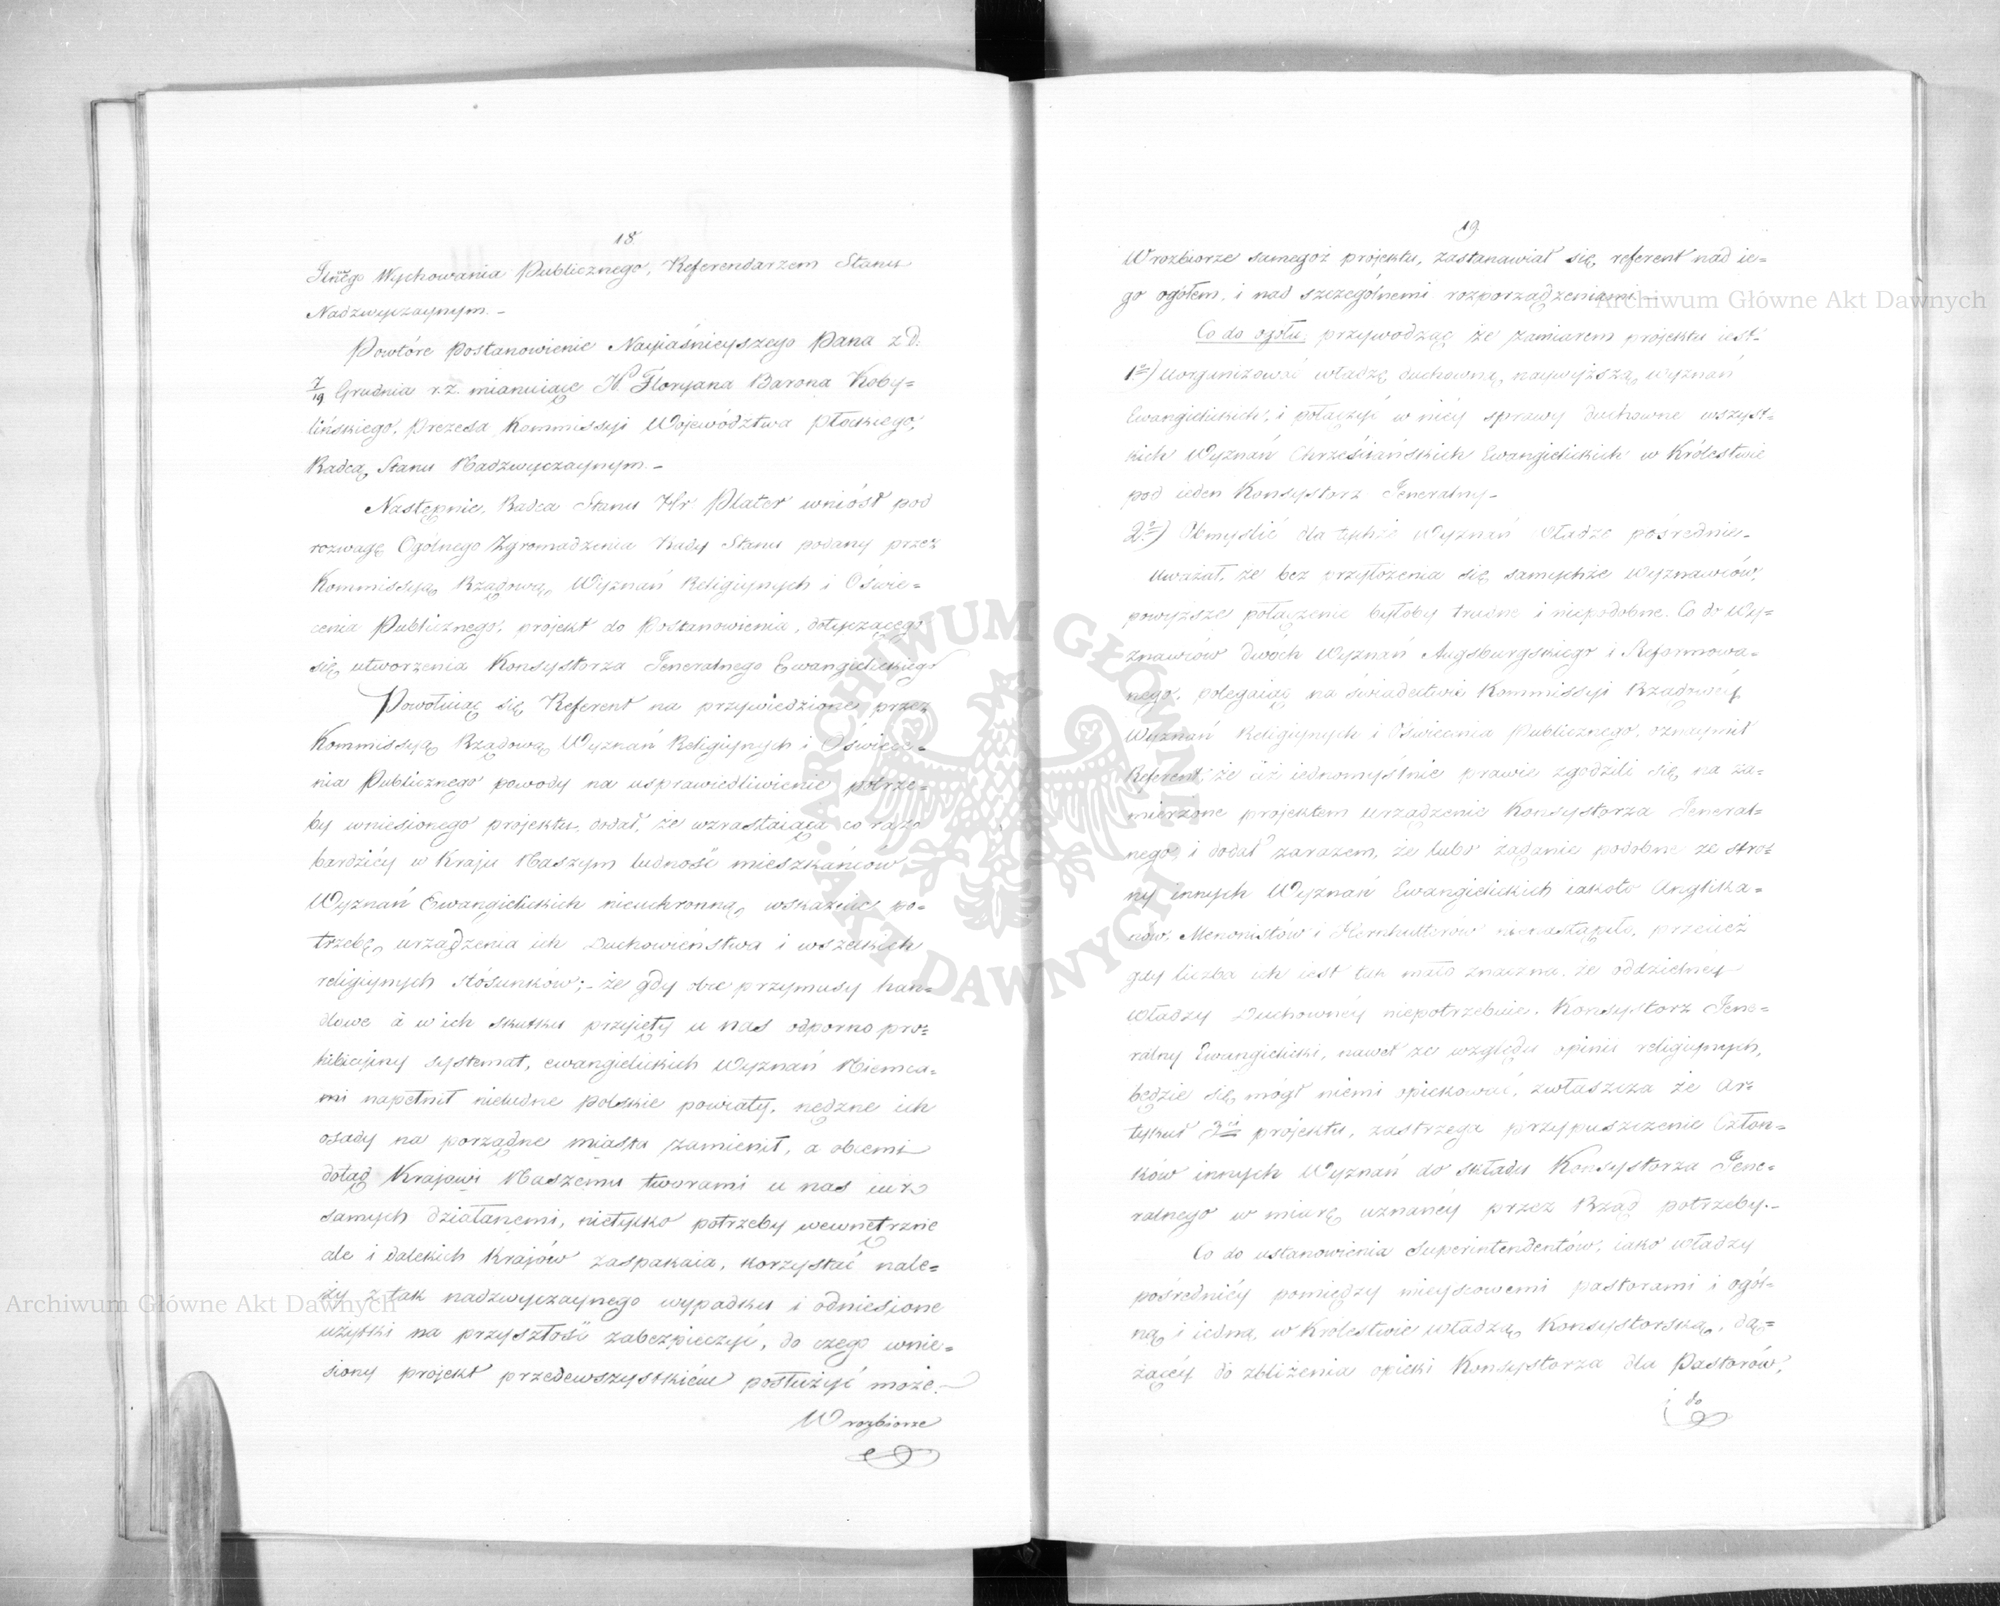 18.
Wychowania Publicznego, Referendarzem Stanu
Nadzwyczaynym. –
Powtóre Postanowienie Nayiaśnieyszego Pana z d.
7/19 Grudnia r. z. mianuiące H° Floryana Barona Koby=
lińskiego, Prezesa Kommissyi Województwa Płockiego,
Radcą Stanu Nadzwyczaynym. –
Następnie, Radca Stanu Hr. Plater wniósł pod
rozwagę Ogólnego Zgromadzenia Rady Stanu podany przez
Kommissyą Rządową Wyznań Religiynych i Oświe=
cenia Publicznego, projekt do Postanowienia, dotyczącego
się utworzenia Konsystorza Jeneralnego Ewangielickiego
Powołuiąc się Referent na przywiedzione przez
Kommissyą Rządową Wyznań Religiynych i Oświece=
nia Publicznego powody na usprawiedliwienie potrze=
by wniesionego projektu, dodał, że wzrastaiąca co raz
bardziéy w Kraju Naszym ludność mieszkańców
Wyznań Ewangielickich nieuchronną wskazuie po=
trzebę urządzenia ich Duchowieństwa i wszelkich
religiynych stósunków; – że gdy obce przymusy han=
dlowe à w ich skutku przyięty u nas odporno pro=
hibicyiny systemat, ewangielickich Wyznań Niemca=
mi napełnił nieludne polskie powiaty, nędzne ich
osady na porządne miasta zamienił, a obcemi
dotąd Krajowi Naszemu tworami u nas iuż
samych działanemi, nietylko potrzeby wewnętrzne
ale i dalekich Krajów zaspakaia, korzystać nale=
ży z tak nadzwyczaynego wypadku i odniesione
użytki na przyszłość zabezpieczyć, do czego wnie=
siony projekt przedewszystkiém posłużyć może. –
W rozbiorze
19.
W rozbiorze samegoż projektu, zastanawiał się referent nad ie=
go ogółem, i nad szczególnemi rozporządzeniami. –
Co do ogółu, przywodząc że zamiarem projektu iest:
1°) Uorganizować władzę duchowną, naywyższą Wyznań
Ewangielickich, i połączyć w niéy sprawy duchowne wszyst=
kich Wyznań Chrześciańskich Ewangielickich w Królestwie
pod ieden Konsystorz Jeneralny –
2°) Obmyslić dla tychże Wyznań Władze pośrednie –
uważał, że bez przyłożenia się samychże Wyznawców,
powyższe połączenie byłoby trudne i niepodobne. Co do Wy=
znawców dwóch Wyznań Augsburgskiego i Reformowa=
nego, polegaiąc na świadectwie Kommissyi Rządowéy
Wyznań Religiynych i Oświecenia Publicznego, oznaymił
Referent, że iuż iednomyślnie prawie zgodzili się na za=
mierzone projektem urządzenie Konsystorza Jeneral=
nego, i dodał zarazem, że lubo żądanie podobne ze stro=
ny innych Wyznań Ewangielickich iakoto Anglika=
nów, Menonistów i Hernhuterów nie nastąpiło, przecież
gdy liczba ich iest tak mało znaczna, że oddzielnéy
władzy Duchownéy niepotrzebuie, Konsystorz Jene=
ralny Ewangielicki, nawet ze względu opinii religiynych,
będzie się mógł niemi opiekować, zwłaszcza że Ar=
tykuł projektu, zastrzega przypuszczenie Człon=
ków innych Wyznań do składu Konsystorza Jene=
ralnego w miarę uznanéy przez Rząd potrzeby. –
Co do ustanowienia Superintendentów, iako władzy
pośredniéy pomiędzy mieyscowemi pastorami i ogól=
ną i iedną w Królestwie władzą Konsystorską, dą=
żącéy do zbliżenia opieki Konsystorza dla Pastorów,
i do
Archiwum Główne Akt Dawnych
Archiwum Główne Akt Dawnych
ARCHIWUM GŁÓWNE • AKT DAWNYCH •